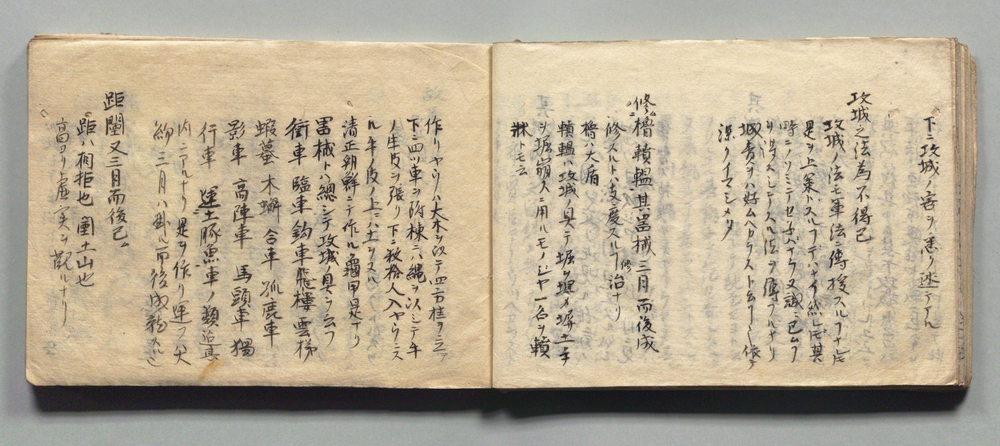 下ニ攻城ノ害ヲ悉ク述テアル
攻城之法為不得已
攻城ノ法モ軍法ニ傳授スルフナレ𪜈
是ヲ上策トスルフデハナイ然レ𪜈其
時ニノゾミテセ子バナラヌ又誠ニ已ムフ
ヲ得ズシテスル法ヲ傳フルナリ
城責ヲハ好ムヘカラスト云フ
深クイマシメタ
修櫓轒轀具器械三月而後成
修スルトハ支度スルフ治ナリ
櫓ハ大盾
轒轀ハ攻城ノ具デ堀ヲ埋メ塀土手
ヲ堀崩スニ用ルモノジヤ一名ヲ轒
牀トモ云
作リヤウハ大木ヲ以テ四方桂ヲ立
下ニ四ツ車ヲ附棟ニハ縄ヲ以シテ牛
ノ生皮ヲ張リ下ニ数拾人入ヤウニス
ル牛ノ皮ノ上ニハ土ヲヌル
清正朝鮮ニテ作ル亀甲是ナリ
器械トハ總シテ攻城ノ具ヲ云フ
衝車 臨車 鈎車 飛樓 雲梯
蝦蟇木 蠏 合車 孤鹿車
影車 高陣車 馬頭車 獨
行車 運土豚魚車ノ類
内ニアルナリ是ヲ作リ運フ
三月ハ掛ル而後成
距闉又三月而後已
距ハ相拒也闉土山也
高ヨリ虚実ヲ觀ルナリ